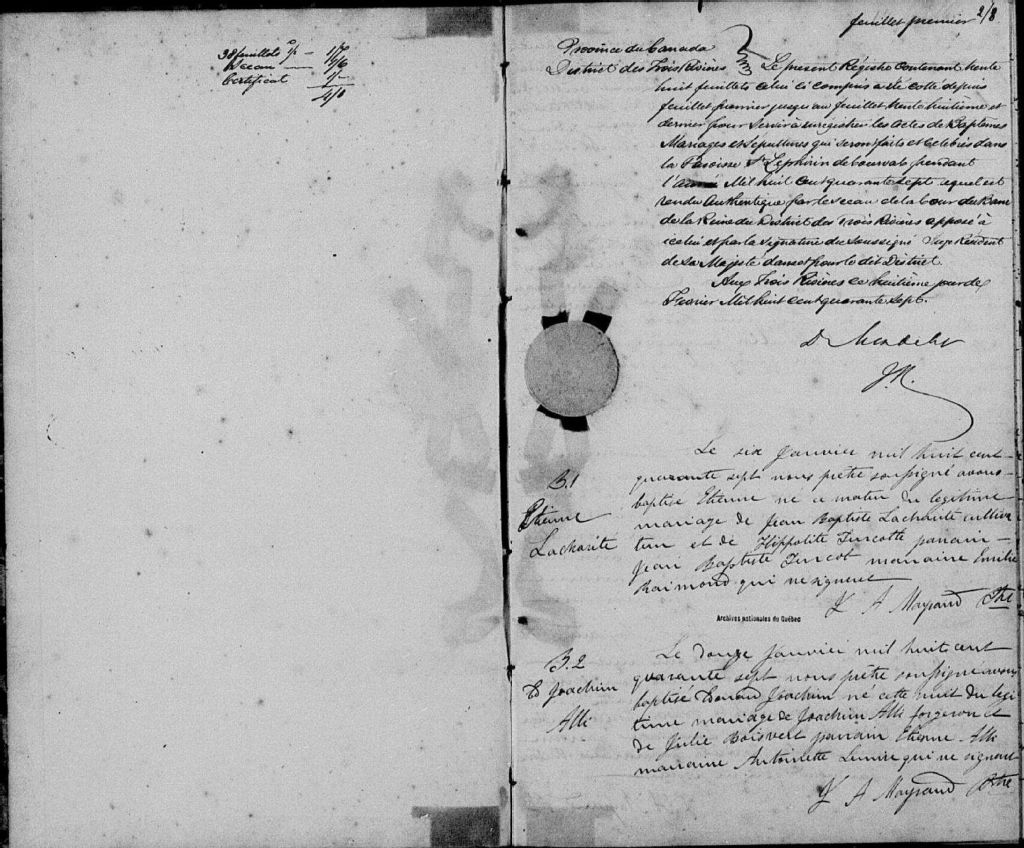 38 feuillets
Sceau
Certificat
feuillet premier 2/8
Province du Canada
District des Trois Rivières
Le present Régistre contenant trente
huit feuillets celui ci compris a été coté depuis
feuillet premier jusqu au feuillet trente huitième et
dernier pour servir à enrégistrer les actes de Baptêmes
Mariages et Sépultures qui seront faits et célébrés dans
la Paroisse St Zephirin de Courval pendant
l'année Mil huit cent quarante sept lequel est
rendu Authentique par le sceau de la Cour du Banc
de la Reine du District des Trois Rivières apposé à
icelui et par la signature du soussigné
de Sa Majesté dans et pour le dit District
Aux Trois Rivières ce huitième jour de
Fevrier Mil huit cent quarante sept.
B.1
Etienne
Lacharite
Le six Janvier mil huit cent
quarante sept nous prêtre soussigné avons
baptisé Etienne né ce matin du legitime
mariage de Jean Baptiste Lacharité cultiva
teur et de Hippolite Turcotte parrain
Jean Baptiste Turcot marraine Emilie
Raimond qui ne signent
A Mayrand Ptre
Archives nationales du Québec
B.2
D Joachim
Alli
Le douze Janvier mil huit cent
quarante sept nous prêtre soussigné avons
baptisé Donard Joachim né cette nuit du legi
time mariage de Joachim Alli forgeron et
de Julie Boisvert parrain Etienne Alli
marraine Antoinette Lemire qui ne signent
A Mayrand Ptre